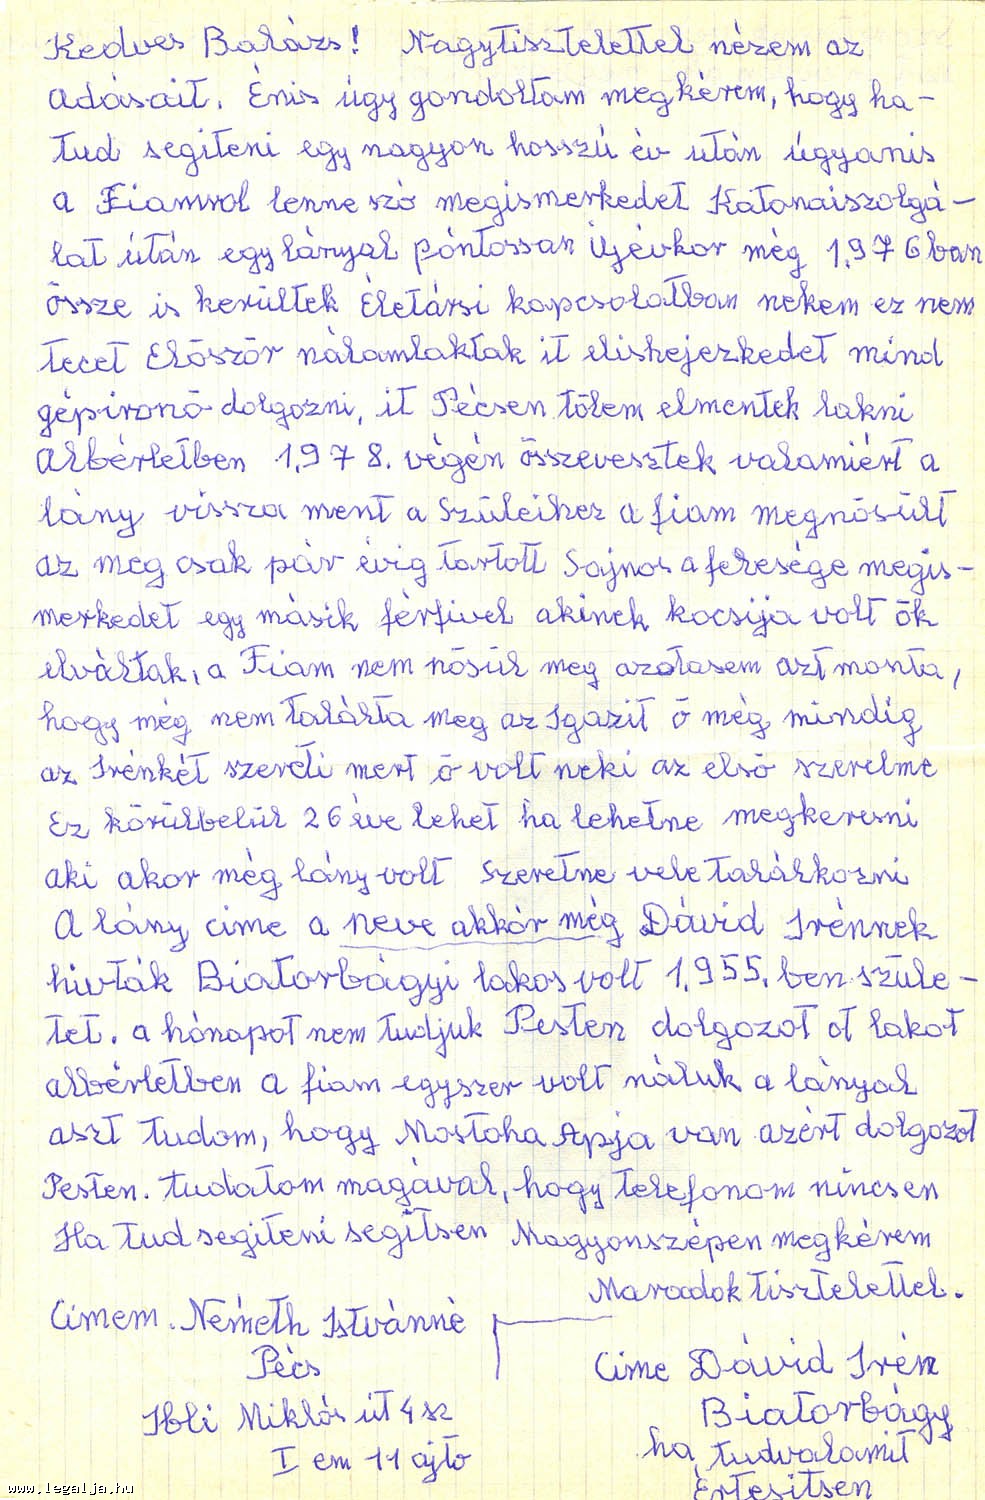 Kedves Balázs! Nagytisztelettel nézem az
adásait. Énis úgy gondoltam megkérem, hogy ha-
tud segiteni egy nagyon hosszú év után úgyanis
a Fiamrol lenne szó megismerkedet Katonaiszolgá-
lat útán egy lányal póntossan Ujévkor még 1.976ban
össze is kerültek Életársi kapcsolatban nekem ez nem
tecet Elöször nálamlaktak it elishejezkedet mind
gépironö dolgozni, it Pécsen tölem elmentek lakni
Albérletben 1.978. végén összevesztek valamiért a
lány vissza ment a Szüleihez a fiam megnösült
az meg csak pár évig tartott Sajnos a felesége megis-
merkedet egy másik férfivel akinek kocsija volt ök
elváltak, a Fiam nem nösül meg azotasem azt monta,
hogy még nem talákta meg az Igazit ö még mindig
az Irénkét szereti mert ö volt neki az elsö szerelme
Ez körülbelül 26 éve lehet ha lehetne megkeresni
aki akor még lány volt Szeretne vele talákozni
A lány cime a neve akkór még Dávid Irénnek
hivták Biatorbágyi lakos volt 1.955.ben szüle-
tet. a hónapot nem tudjuk Pesten dolgozot ot lakot
albérletben a fiam egyszer volt náluk a lányal
aszt tudom, hogy Mostoha Apja van azért dolgozot
Pesten. tudatom magával, hogy telefonom nincsen
Ha tud segiteni segitsen Nagyonszépen megkérem
Maradok tisztelettel.
Cimem. Németh Istvánné
Pécs
Ibli Miklós út 4 sz
I em 11 ajto
Cime Dávid Irén
Biatorbágy
ha tudvalamit
Értesitsen
www.legalja.hu